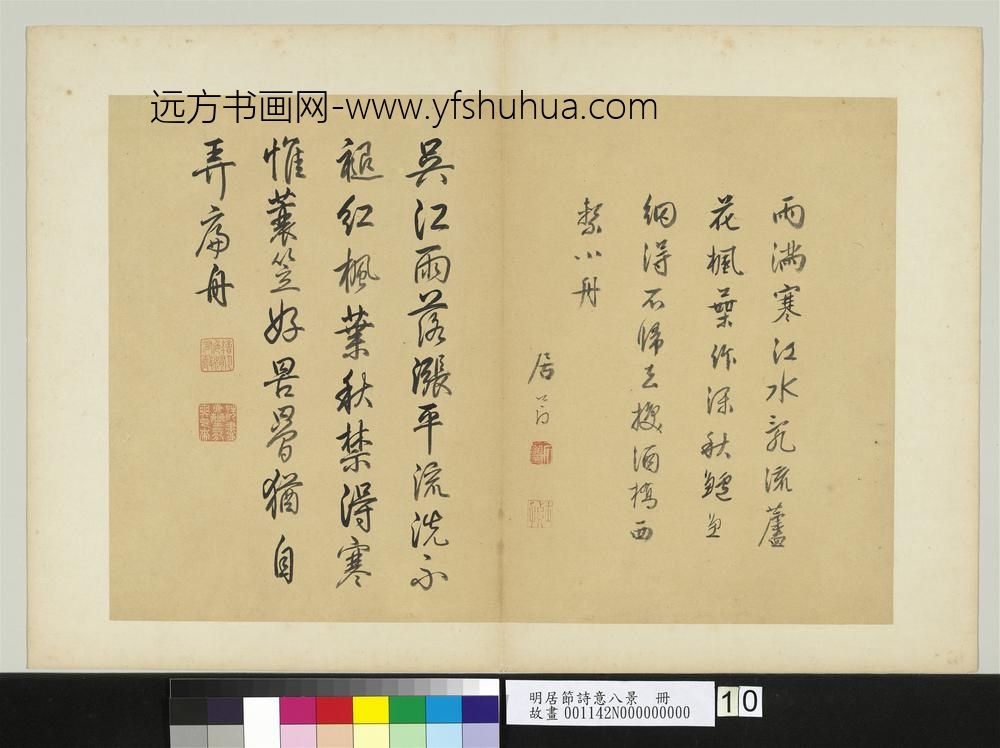 远方书画网-www.yfshuhua.com
雨满寒江水乱流蘆
花楓葉作深秋鱸魚
網得不歸去換酒橋西
繫小舟
居節
吳江雨落漲平流洗不
褪红楓葉秋禁得寒
惟蓑笠好罟罾猶自
弄扁舟
明居節詩意八景 冊
故畫 001142N000000000
10